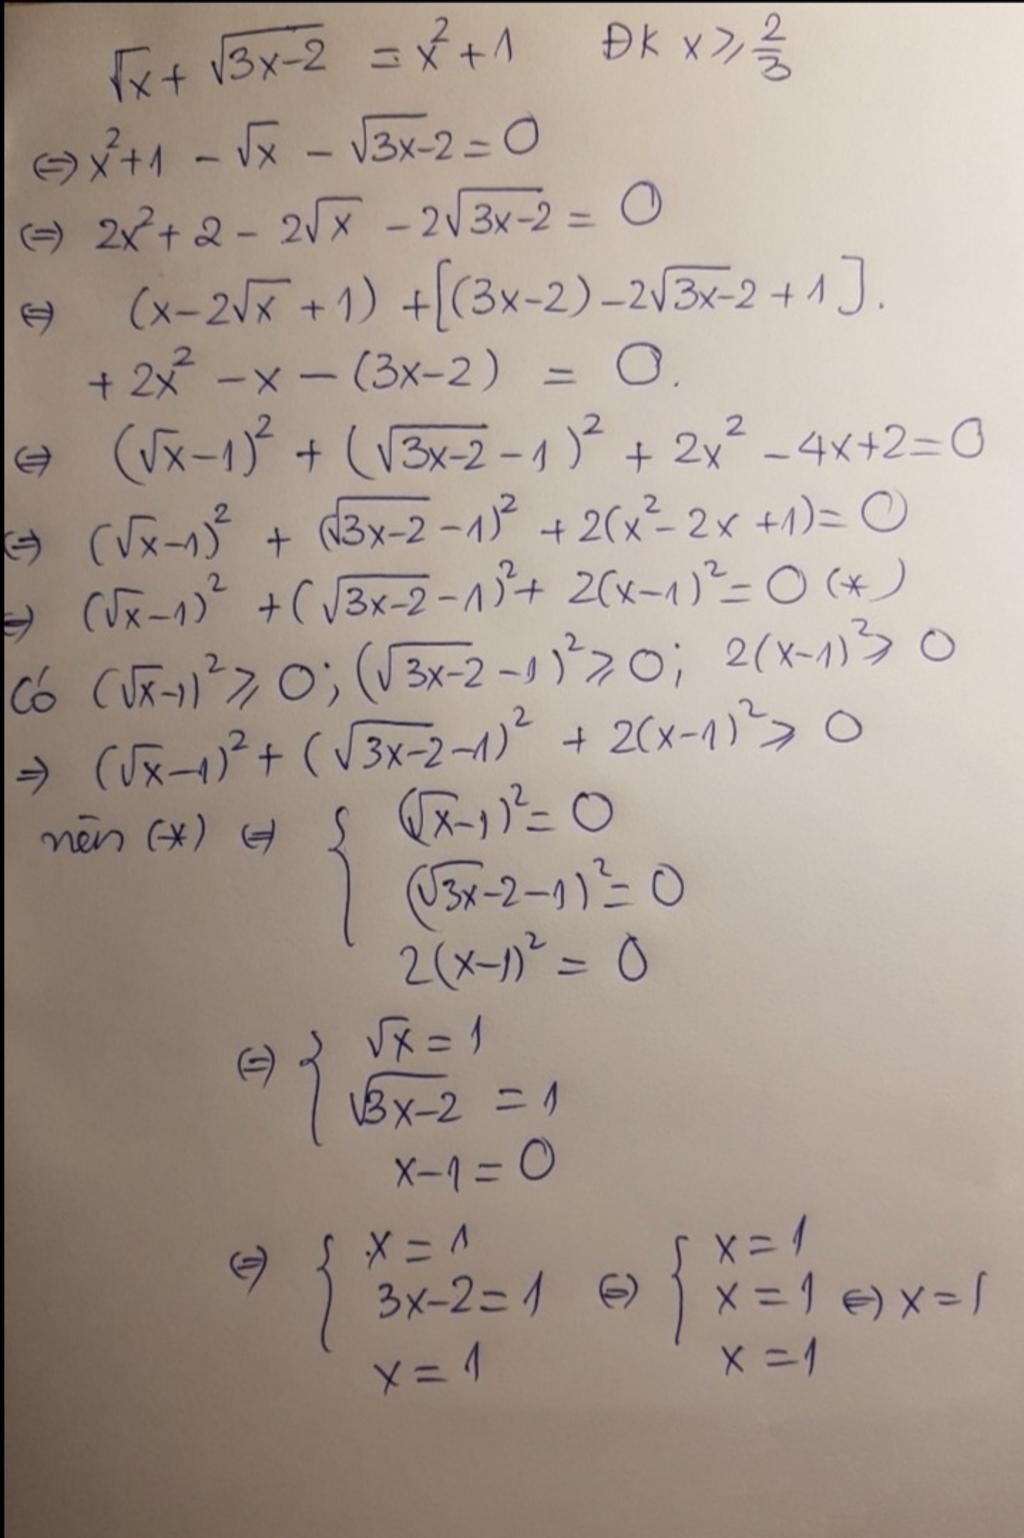 √x + √(3x-2) = x² + 1 ĐK x ⩾ 2/3
⇔ x² + 1 - √x - √(3x-2) = 0
⇔ 2x² + 2 - 2√x - 2√(3x-2) = 0
⇔ (x - 2√x + 1) + [(3x-2) - 2√(3x-2) + 1].
+ 2x² - x - (3x-2) = 0.
⇔ (√x - 1)² + (√(3x-2) - 1)² + 2x² - 4x + 2 = 0
⇔ (√x - 1)² + (√(3x-2) - 1)² + 2(x² - 2x + 1) = 0
⇔ (√x - 1)² + (√(3x-2) - 1)² + 2(x-1)² = 0 (*)
Có (√x - 1)² ⩾ 0; (√(3x-2) - 1)² ⩾ 0; 2(x-1)² ⩾ 0
⇒ (√x - 1)² + (√(3x-2) - 1)² + 2(x-1)² ⩾ 0
nên (*) ⇔ { (√x - 1)² = 0
(√(3x-2) - 1)² = 0
2(x-1)² = 0
⇔ { √x = 1
√(3x-2) = 1
x - 1 = 0
⇔ { x = 1
3x-2 = 1
x = 1
⇔ { x = 1
x = 1
x = 1
⇔ x = 1